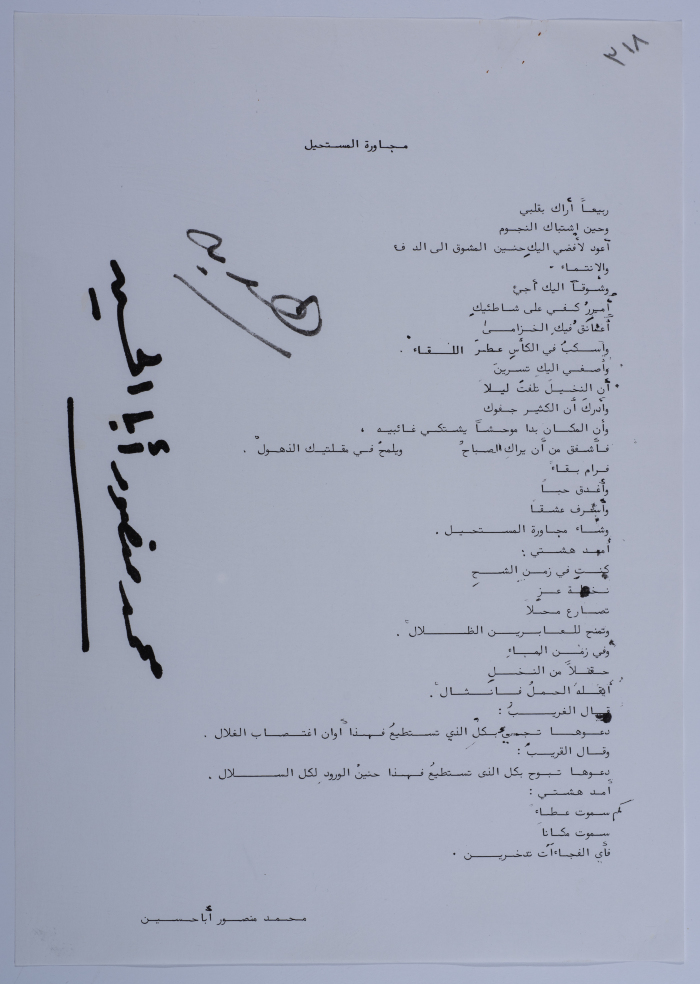 ٣١٨
مجاورة المستحيل
ربيعاً أراك بقلبي
وحين اشتباك النجوم
أعود لأفضي اليك حنين المشوق الى الدفء
والإنتماء .
وشوقاً اليك أجيء
أمررُ كفي على شاطئيك
أعانق فيك الخزامى
وأسكبُ في الكأسِ عطرَ اللقاء .
وأصغي اليك تسرين
أن النخيلَ تلفتَ ليلاً
وأدركَ أن الكثير جفوك
وأن المكان بدا موحشاً يشتكي غائبيه ،
فأشفق من أن يراك الصباحُ ويلمحَ في مقلتيك الذهول .
فرام بقاءً
وأغدق حباً
وأسرف عشقاً
وشاء مجاورة المستحيل .
أمد هشتي :
كنتِ في زمنِ الشحِ
نخلة عزٍ
تصارع محلاً
وتمنح للعابرين الظلال .
وفي زمن الماء
حقلاً من النخلِ
أثقله الحملُ فانثال .
قال الغريبُ :
دعوها تجميء بكلِ الذي تستطيعُ فهذا أوان اغتصاب الغلال .
وقال القريبُ :
دعوها تبوح بكل الذى تستطيعُ فهذا حنينُ الورود لكل السلال .
أمد هشتي :
كم سموت عطاءً
سموت مكاناً
فأي الفجاءآت تدخرين .
محمد منصور أباحسين
محمد منصور أبا الحسين